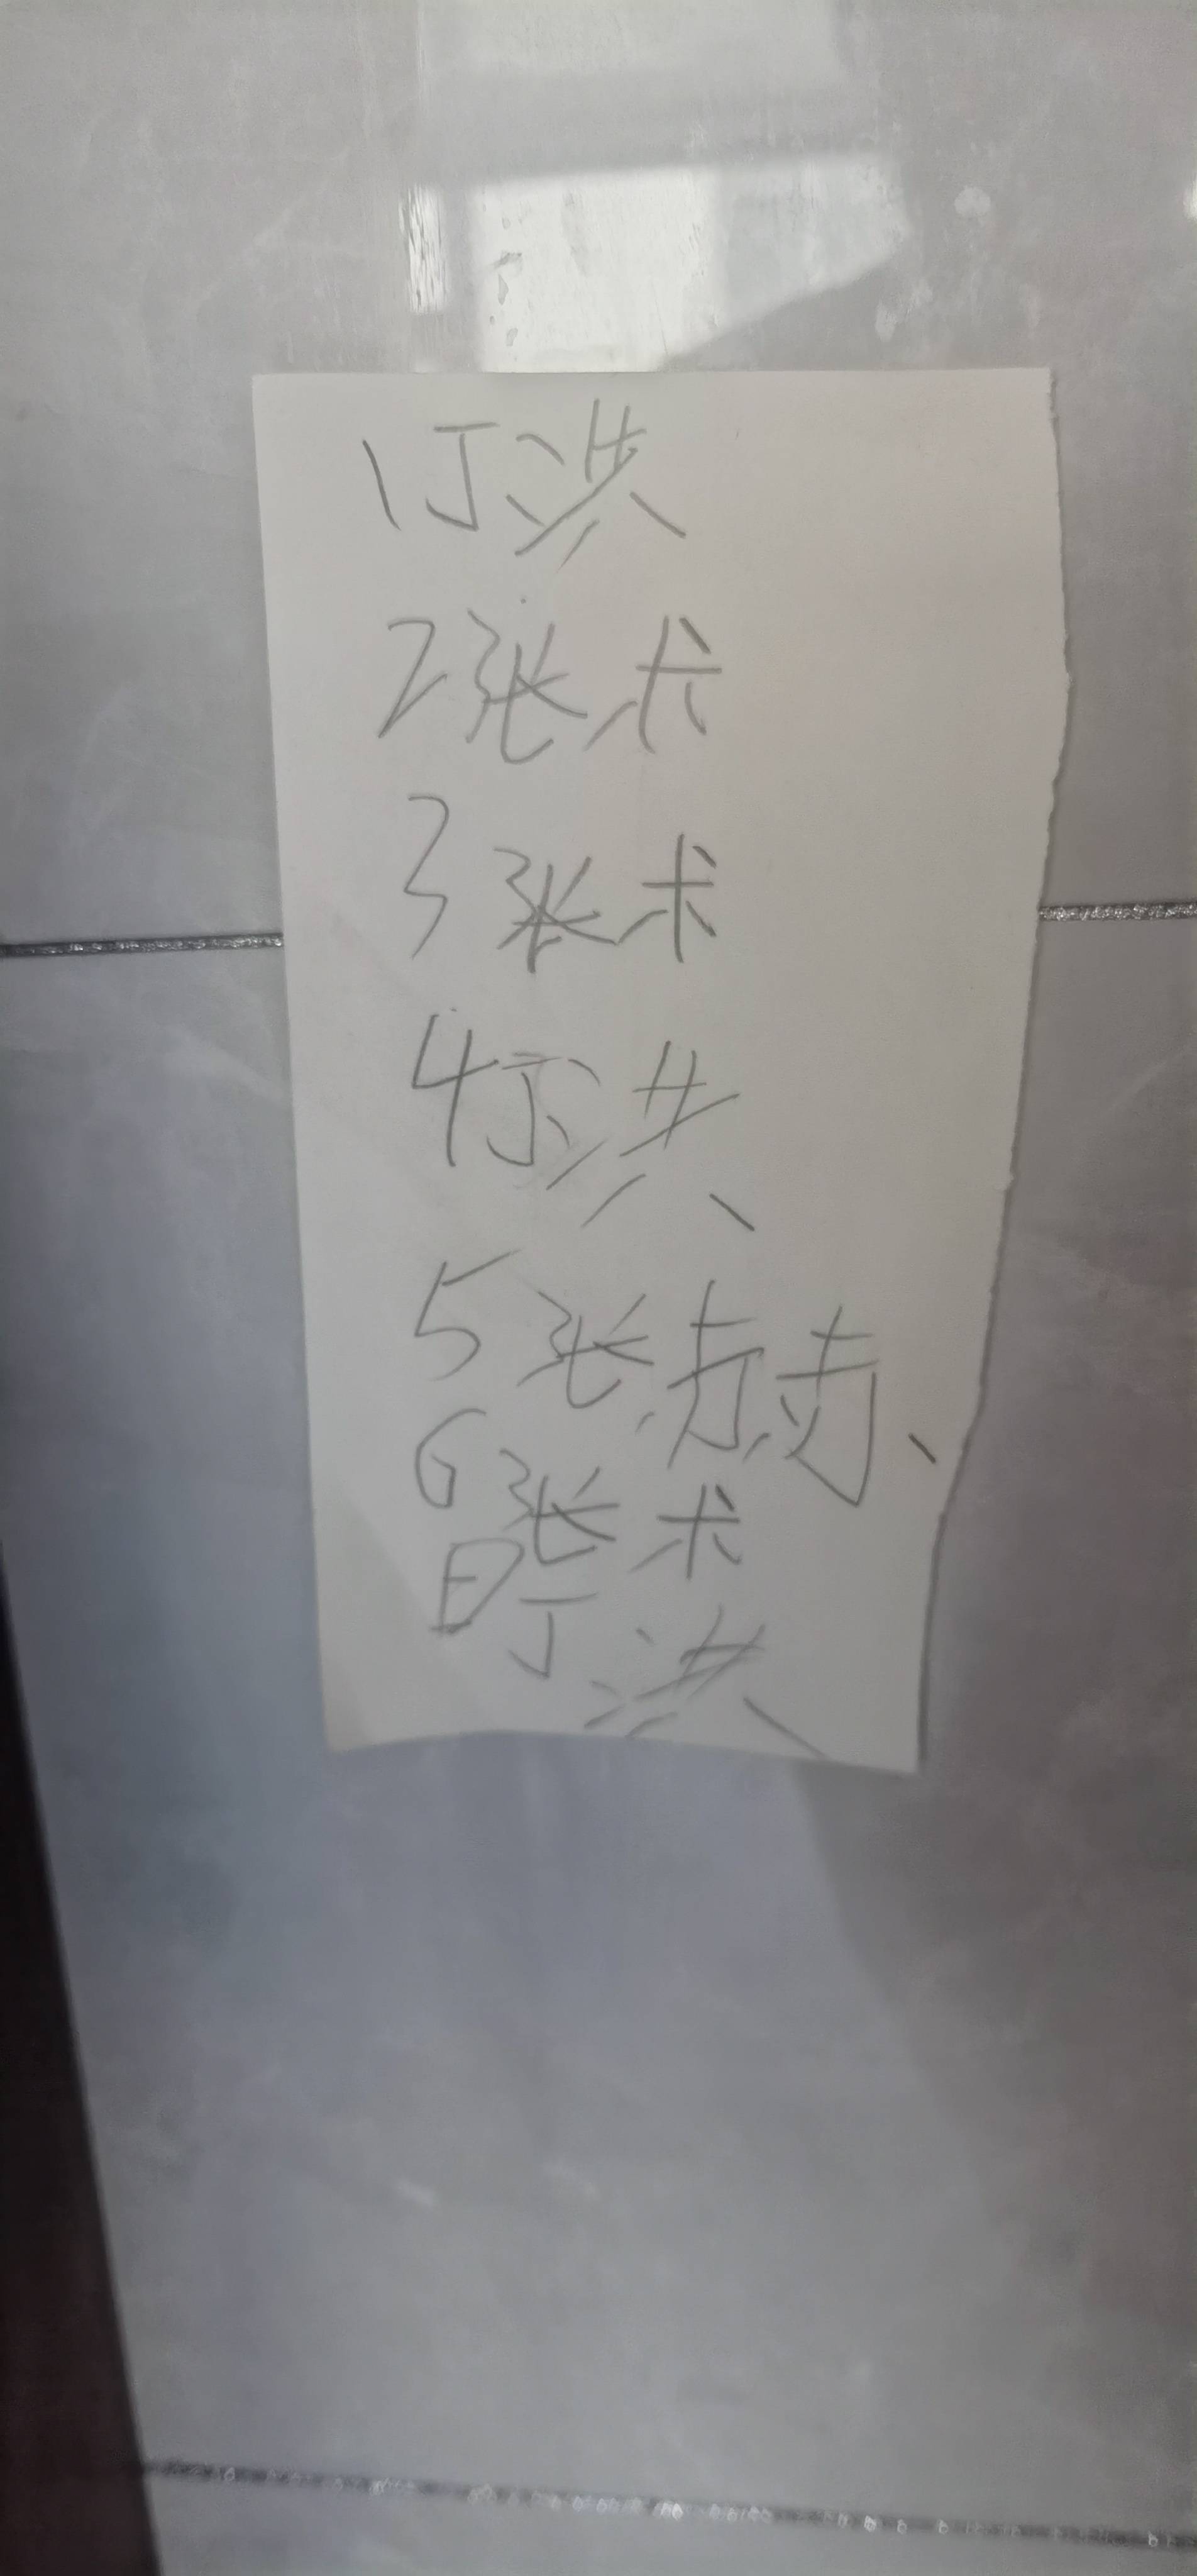 1丁洪
2张术
3张术
4丁洪
5张
6张术
日丁洪